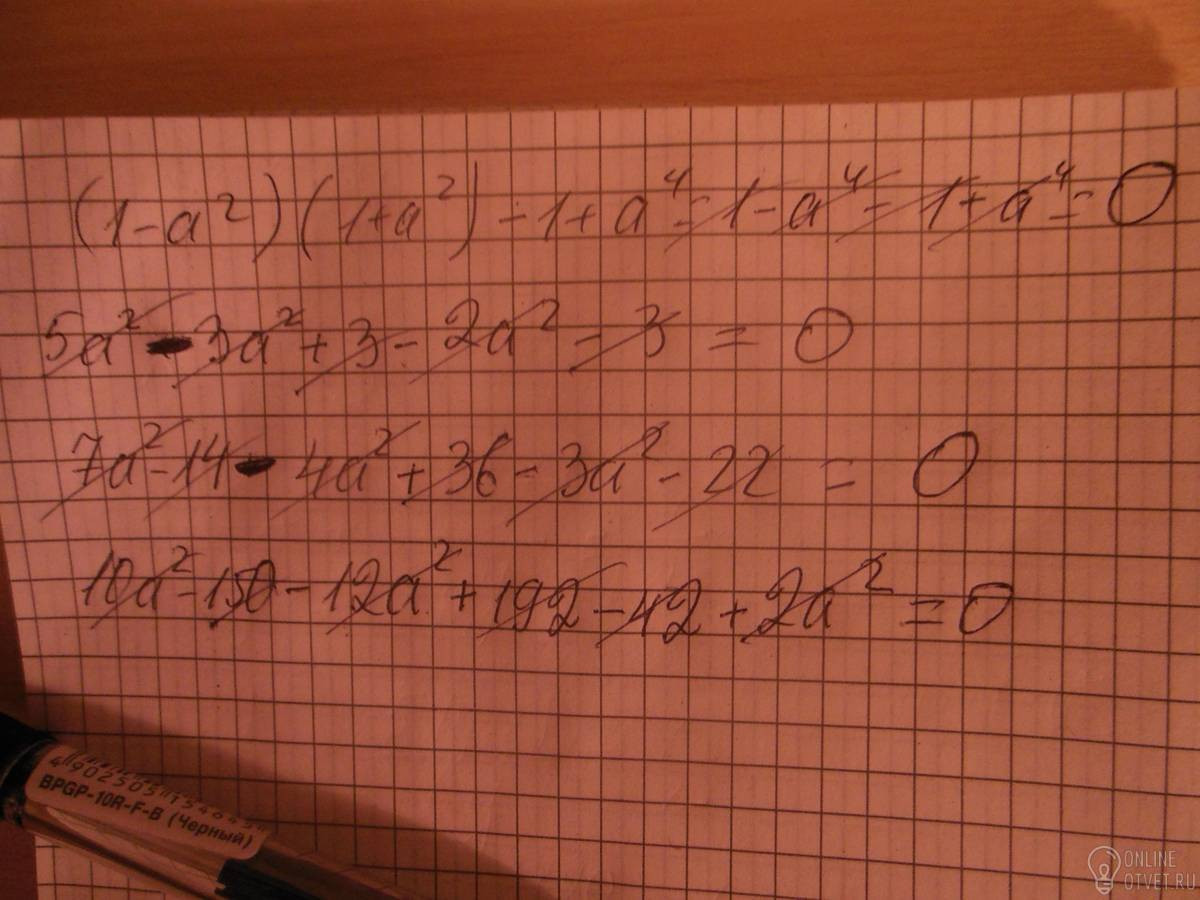 (1-a²)(1+a²)-1+a⁴=1-a⁴-1+a⁴=0
5a²-3a²+3-2a²-3=0
7a²-14-4a²+36-3a²-22=0
10a²-150-12a²+192-42+2a²=0
BPGP-10R-F-B (Черный)
ONLINE
OTVET.RU